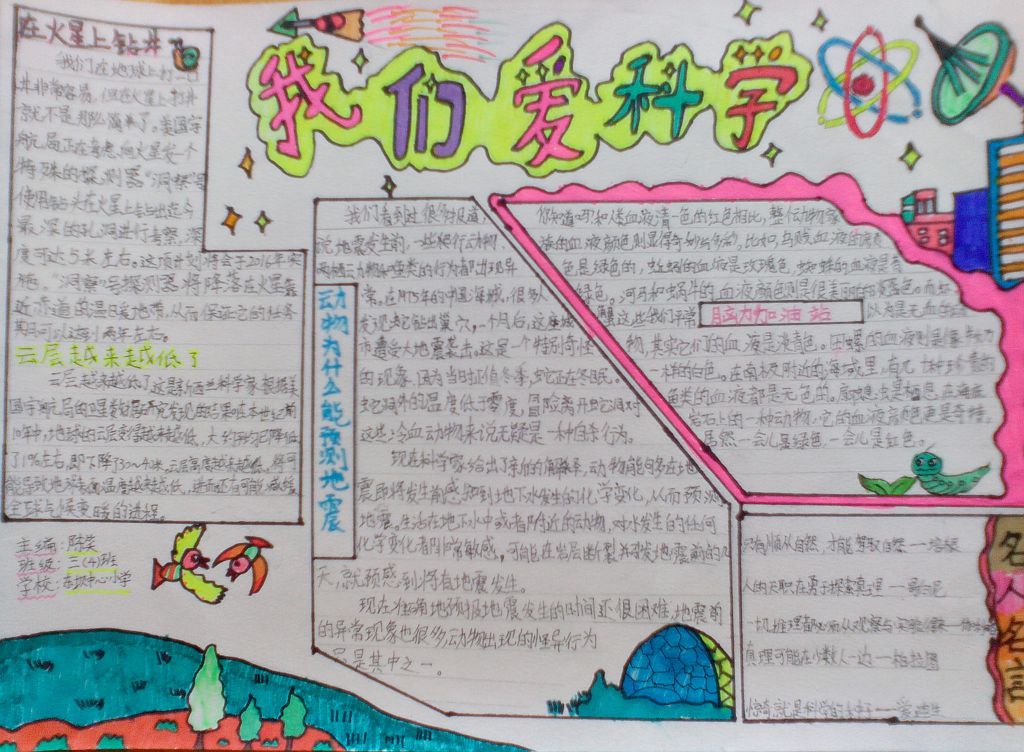 我们爱科学
在火星上钻井
我们在地球上打一口
井非常容易,但在火星上打井
就不是那么简单了。美国宇
航局正在考虑向火星发一个
特殊的探测器“洞察”号
使用钻头在火星上钻出迄今
最深的孔洞进行考察,深
度可达5米左右。这项计划将会于2016年实
施。“洞察”号探测器将降落在火星靠
近赤道的温暖地带,从而保证它的任务
期可以达到两年左右。
云层越来越低了
云层越来越低了这是新西兰科学家根据美
国宇航局的卫星数据研究发现的结果在本世纪前
10年中,地球的云层变得越来越低,大约已降低
了1%左右,即下降30～40米。云层高度越来越低,将可
能导致地球表面温度越来越低,进而还有可能减缓
全球气候变暖的进程。
主编:陈芙
班级:三(4)班
学校:东坝中心小学
动物为什么能预测地震
我们看到过很多报道,
说地震发生前,一些爬行动物、
两栖动物和鱼类的行为都出现异
常。在1975年的中国海城,很多人
发现蛇钻出巢穴。一个月后,这座城
市遭受大地震袭击。这是一个特别奇怪
的现象,因为当时正值冬季,蛇正在冬眠。
蛇洞外的温度低于零度,冒险离开蛇洞对
这些冷血动物来说无疑是一种自杀行为。
现在科学家给出了新的解释,动物能包多在地
震即将发生前感知到地下水发生的化学变化,从而预测
地震。生活在地下水中或者附近的动物,对水发生的任何
化学变化都非常敏感。可能在岩层断裂并引发地震前的几
天,就预感到将有地震发生。
现在准确地预报地震发生的时间还很困难,地震前
的异常现象也很多动物出现的怪异行为
只是其中之一。
脑动加油站
你知道吗?和人类血液清一色的红色相比,整个动物家
族的血液颜色则显得奇妙多多。比如,乌贼血液的颜
色是绿色的,蚯蚓的血液是玫瑰色,蜘蛛的血液是青
绿色。河马和蜗牛的血液颜色则是很美丽的
蟹这些我们平常以为是无血的动
物,其实它们的血液是淡青色。田螺的血液则是像
样的白色。在南极附近的海域里,有几种珍贵的
鱼类的血液都是无色的。扇螅虫是栖息在海底
岩石上的一种动物,它的血液颜色更是奇怪,
居然一会儿是绿色,一会儿是红色。
名人名言
只有顺从自然,才能驾驭自然——培根
人的天职在勇于探索真理——哥白尼
一切推理都必须从观察与实验得来——伽利略
真理可能在少数人一边——柏拉图
惊奇就是科学的种子——爱迪生